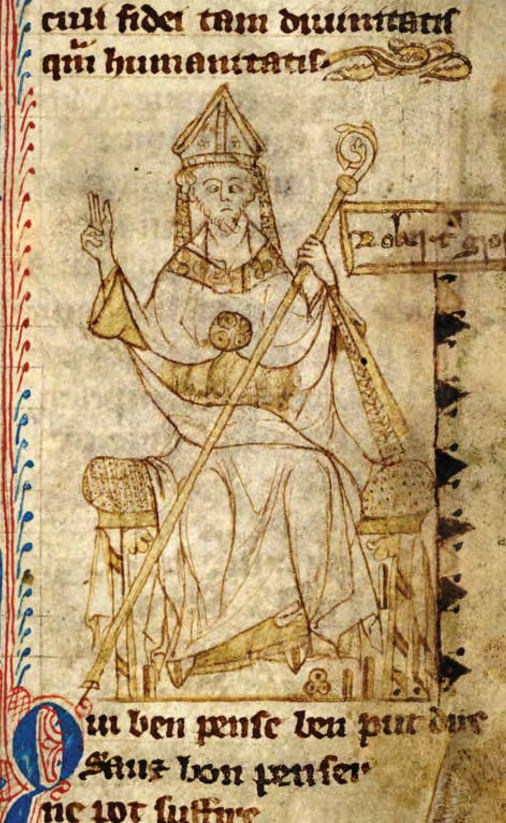 culi fidei tam diuinitatis
qm humanitatis.
Rob't' gros
Qui ben pense ben put dire
Sanz bon penser
ne pot suffire